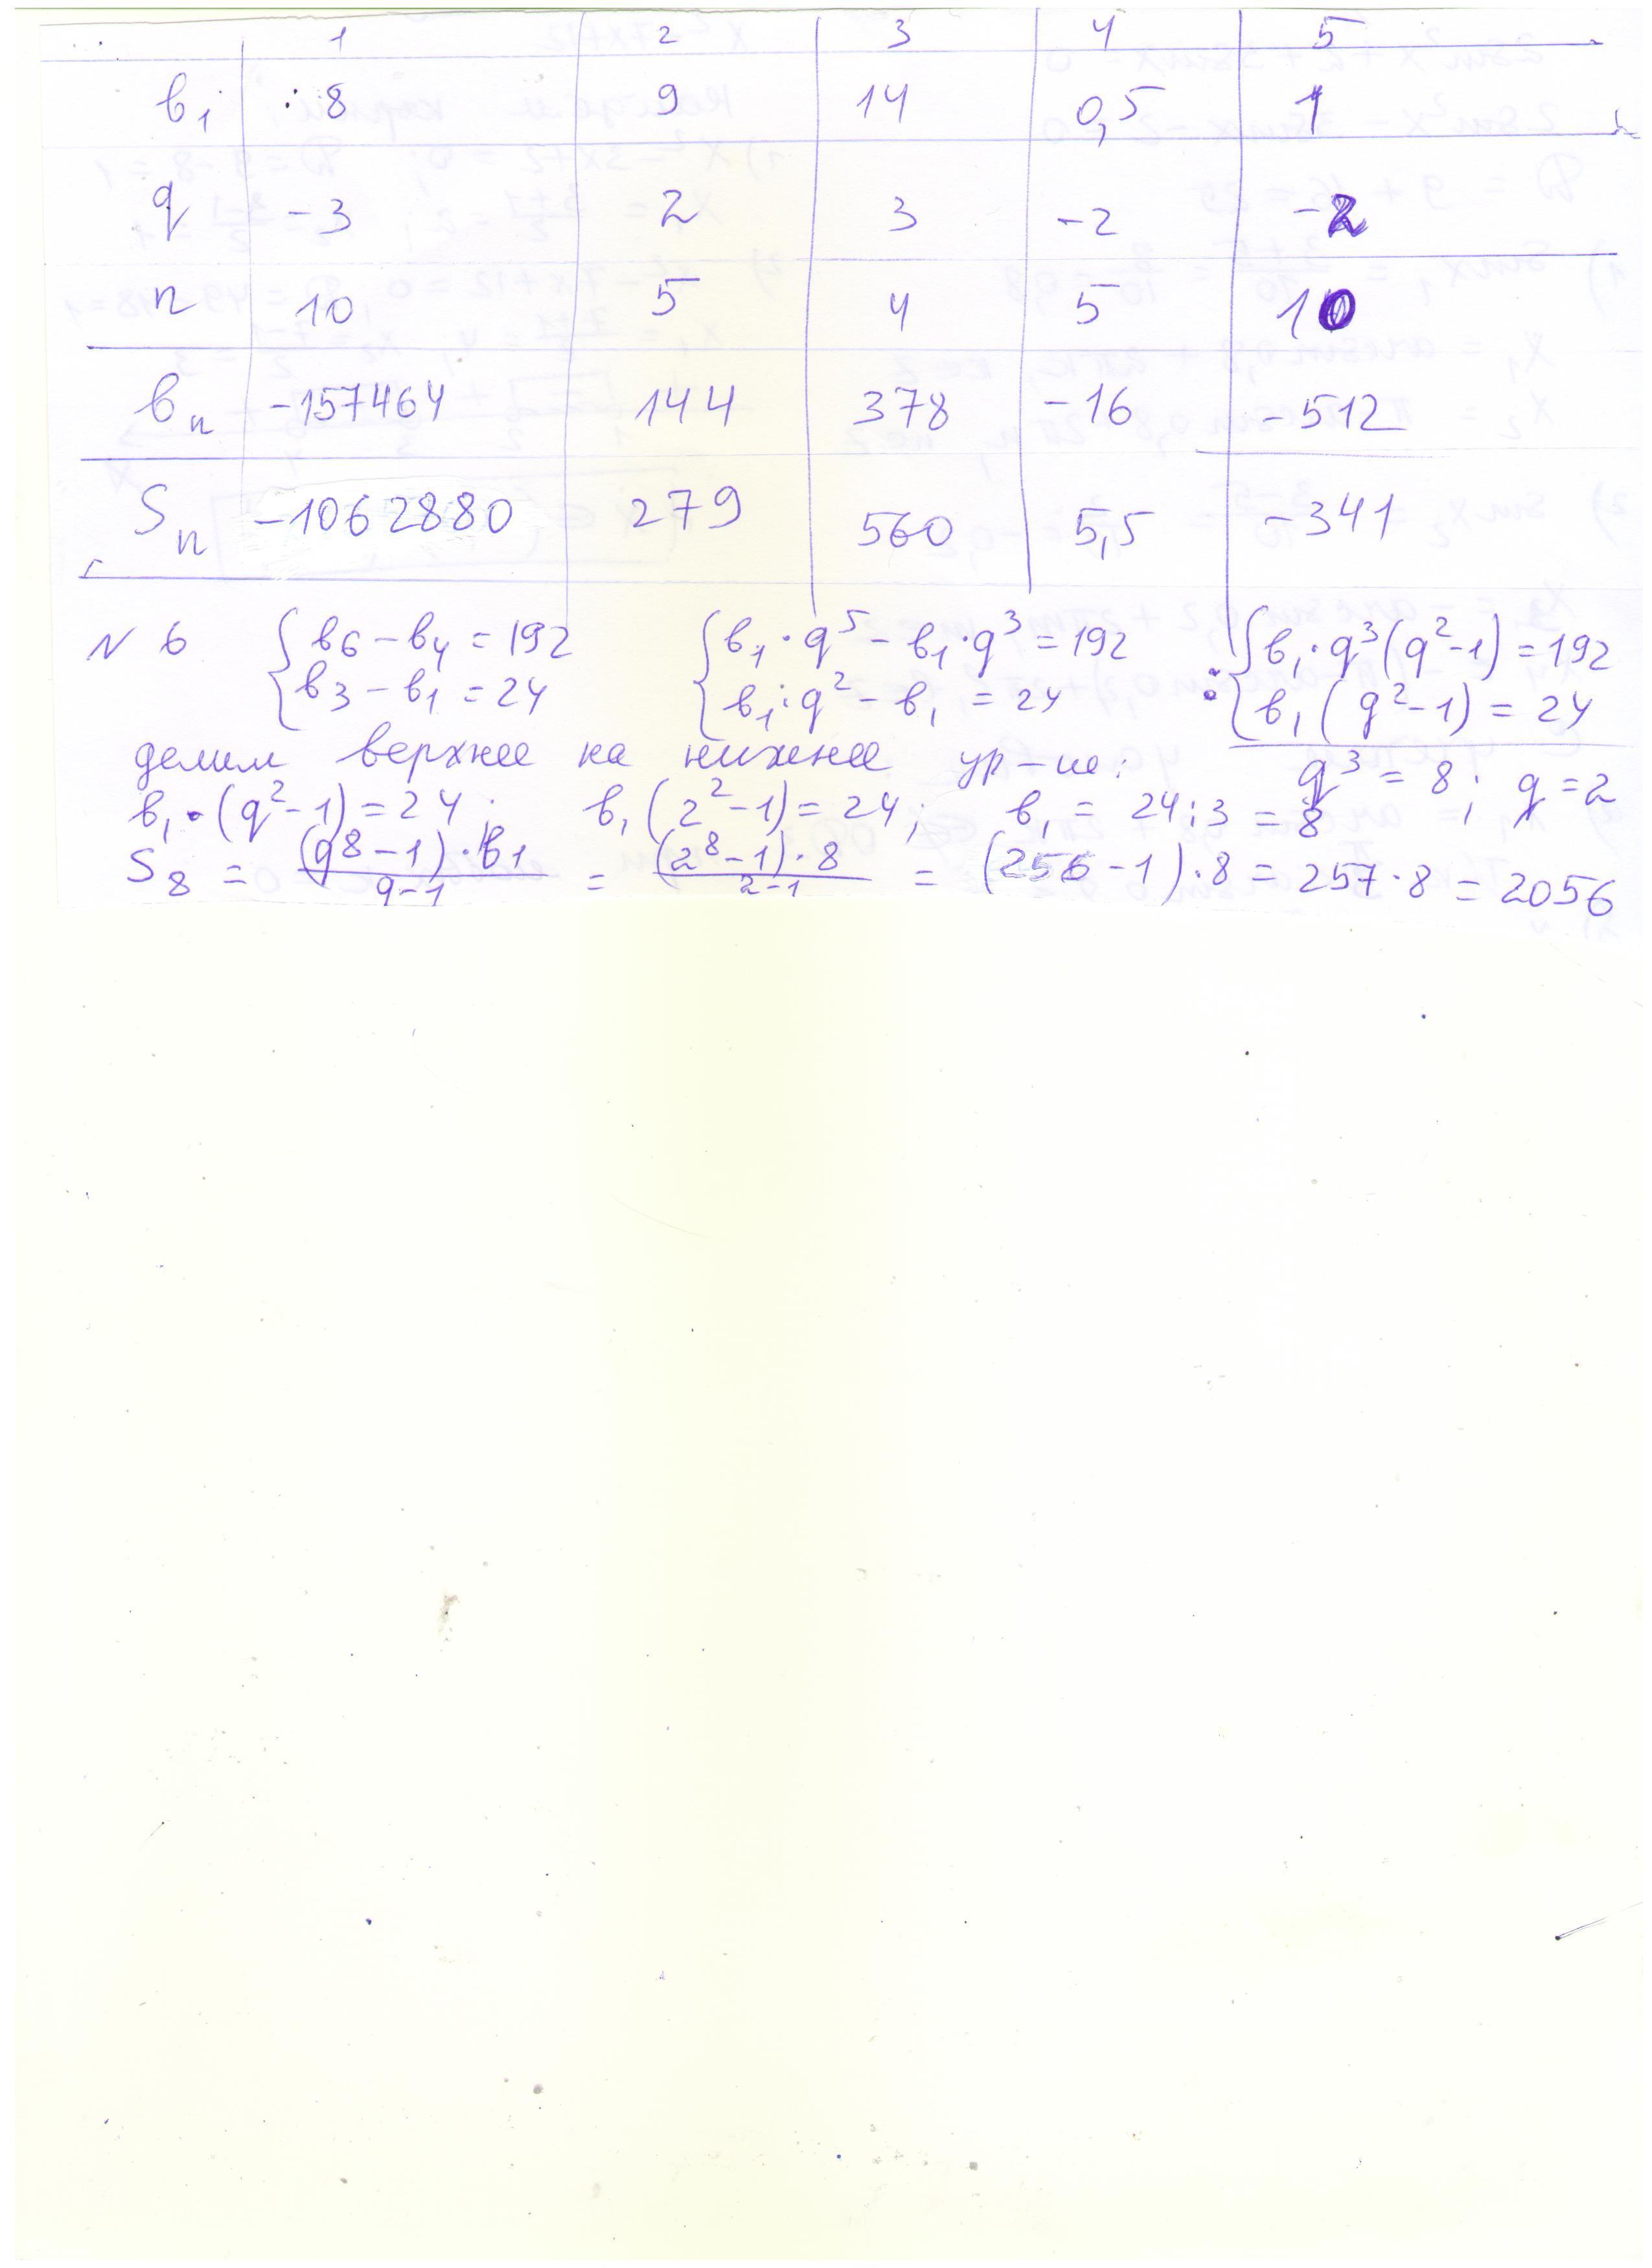 1 2 3 4 5
в₁ 8 9 14 0,5 1
q -3 2 3 -2 -2
n 10 5 4 5 10
вₙ -157464 144 378 -16 -512
Sₙ -1062880 279 560 5,5 -341
N 6 { в₆ - в₄ = 192 { в₁·q⁵ - в₁·q³ = 192 : { в₁·q³(q²-1) = 192
{ в₃ - в₁ = 24 { в₁·q² - в₁ = 24 { в₁(q²-1) = 24
делим верхнее на нижнее ур-ие: q³ = 8; q = 2
в₁·(q²-1) = 24; в₁(2²-1) = 24; в₁ = 24:3 = 8
S₈ = (q⁸-1)·в₁ / q-1 = (2⁸-1)·8 / 2-1 = (256-1)·8 = 257·8 = 2056